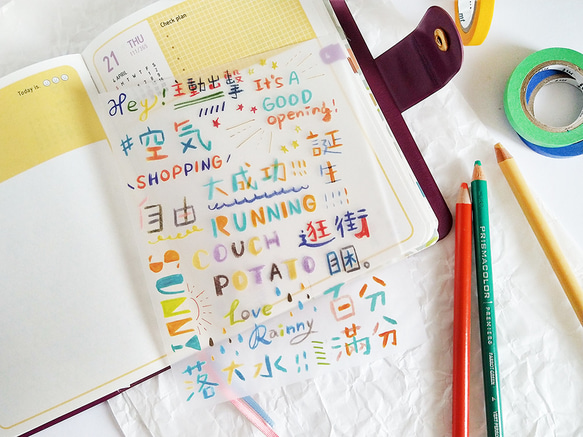 Check plan
21 THU
4 APRIL
M T W T F S S
Today is
Hey! 主動出擊
It's A
GOOD
opening!
#空氣
SHOPPING
誕生
大成功!!!
自由
RUNNING!!!!
COUCH
逛街
POTATO
睏。
SUNNY
Love
百分
Rainny
滿分
落大水!!!
PRISMACOLOR
PREMIER